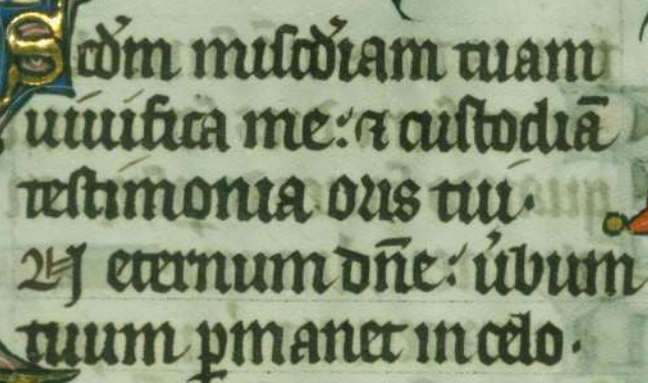 Scd̄m miscd̄iam tuam
uiuifica me: ⁊ custodiā
testimonia oris tui.
In eternum dn̄e: ũbum
tuum ꝑmanet in celo.